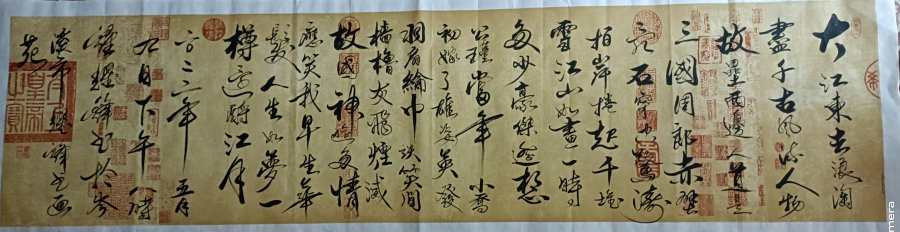 大江東去浪淘
盡千古風流人物
故壘西邊人道是
三國周郎赤壁
亂石穿空驚濤
拍岸捲起千堆
雪江山如畫一時
多少豪傑遙想
公瑾當年小喬
初嫁了雄姿英發
羽扇綸巾談笑間
檣櫓灰飛煙滅
故國神遊多情
應笑我早生華
髮人生如夢一
樽還酹江月
年五月
日下午八時
鋒書於岑
溪市鋒書畫
苑
mera